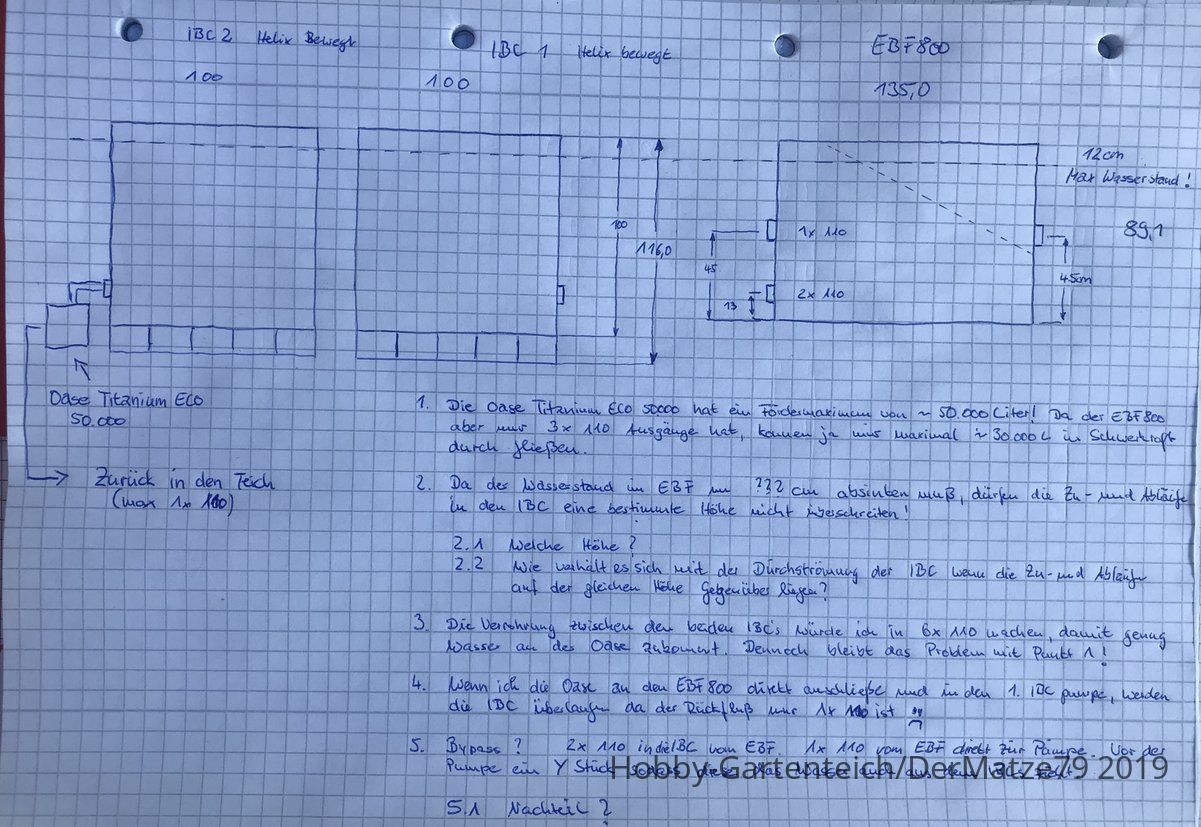 IBC 2 Helix Bewegt
IBC 1 Helix bewegt
EBF800
100
100
135,0
12cm
Max Wasserstand!
89,1
100
116,0
1x 110
45
45cm
13
2x 110
Oase Titanium Eco
50.000
Zurück in den Teich
(max 1x 100)
1. Die Oase Titanium Eco 50000 hat ein Fördermaximum von ~ 50.000 Liter! Da der EBF800
aber nur 3x 110 Ausgänge hat, können ja nur maximal ~ 30.000 L in Schwerkraft
durch fließen.
2. Da der Wasserstand im EBF um ??? cm absinken muß, dürfen die Zu- und Abläufe
in den IBC eine bestimmte Höhe nicht überschreiten!
2.1 Welche Höhe?
2.2 Wie verhält es sich mit der Durchströmung der IBC wenn die Zu- und Abläufe
auf der gleichen Höhe Gegenüber liegen?
3. Die Verrohrung zwischen den beiden IBC's würde ich in 6x 110 machen, damit genug
Wasser an der Oase zukommt. Dennoch bleibt das Problem mit Punkt 1!
4. Wenn ich die Oase an den EBF800 direkt anschließe und in den 1. IBC pumpe, werden
die IBC überlaufen da der Rückfluß nur 1x 100 ist
5. Bypass? 2x 110 in die IBC vom EBF. 1x 110 vom EBF direkt zur Pumpe. Vor der
Pumpe ein Y Stück
Hobby-Gartenteich/DerMatze79 2019
5.1 Nachteil?